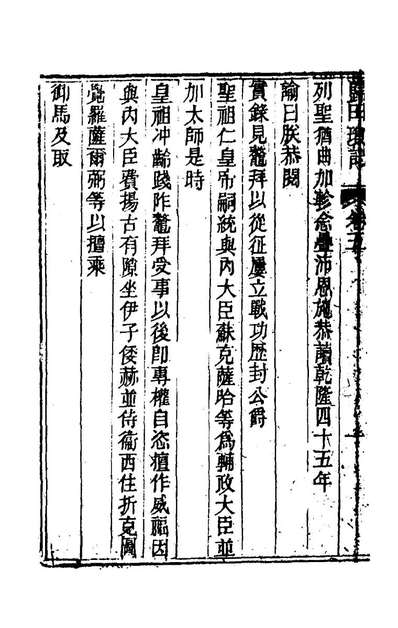 歸田瑣記　卷五
列聖猶曲加軫念疊沛恩施恭讀乾隆四十五年
諭曰朕恭閱
實錄見鰲拜以從征屢立戰功歷封公爵
聖祖仁皇帝嗣統與內大臣蘇克薩哈等爲輔政大臣並
加太師是時
皇祖冲齡踐阼鰲拜受事以後卽專權自恣擅作威福因
與內大臣費揚古有隙坐伊子倭赫並侍衞西住折克圖
覺羅薩爾弼等以擅乘
御馬及取